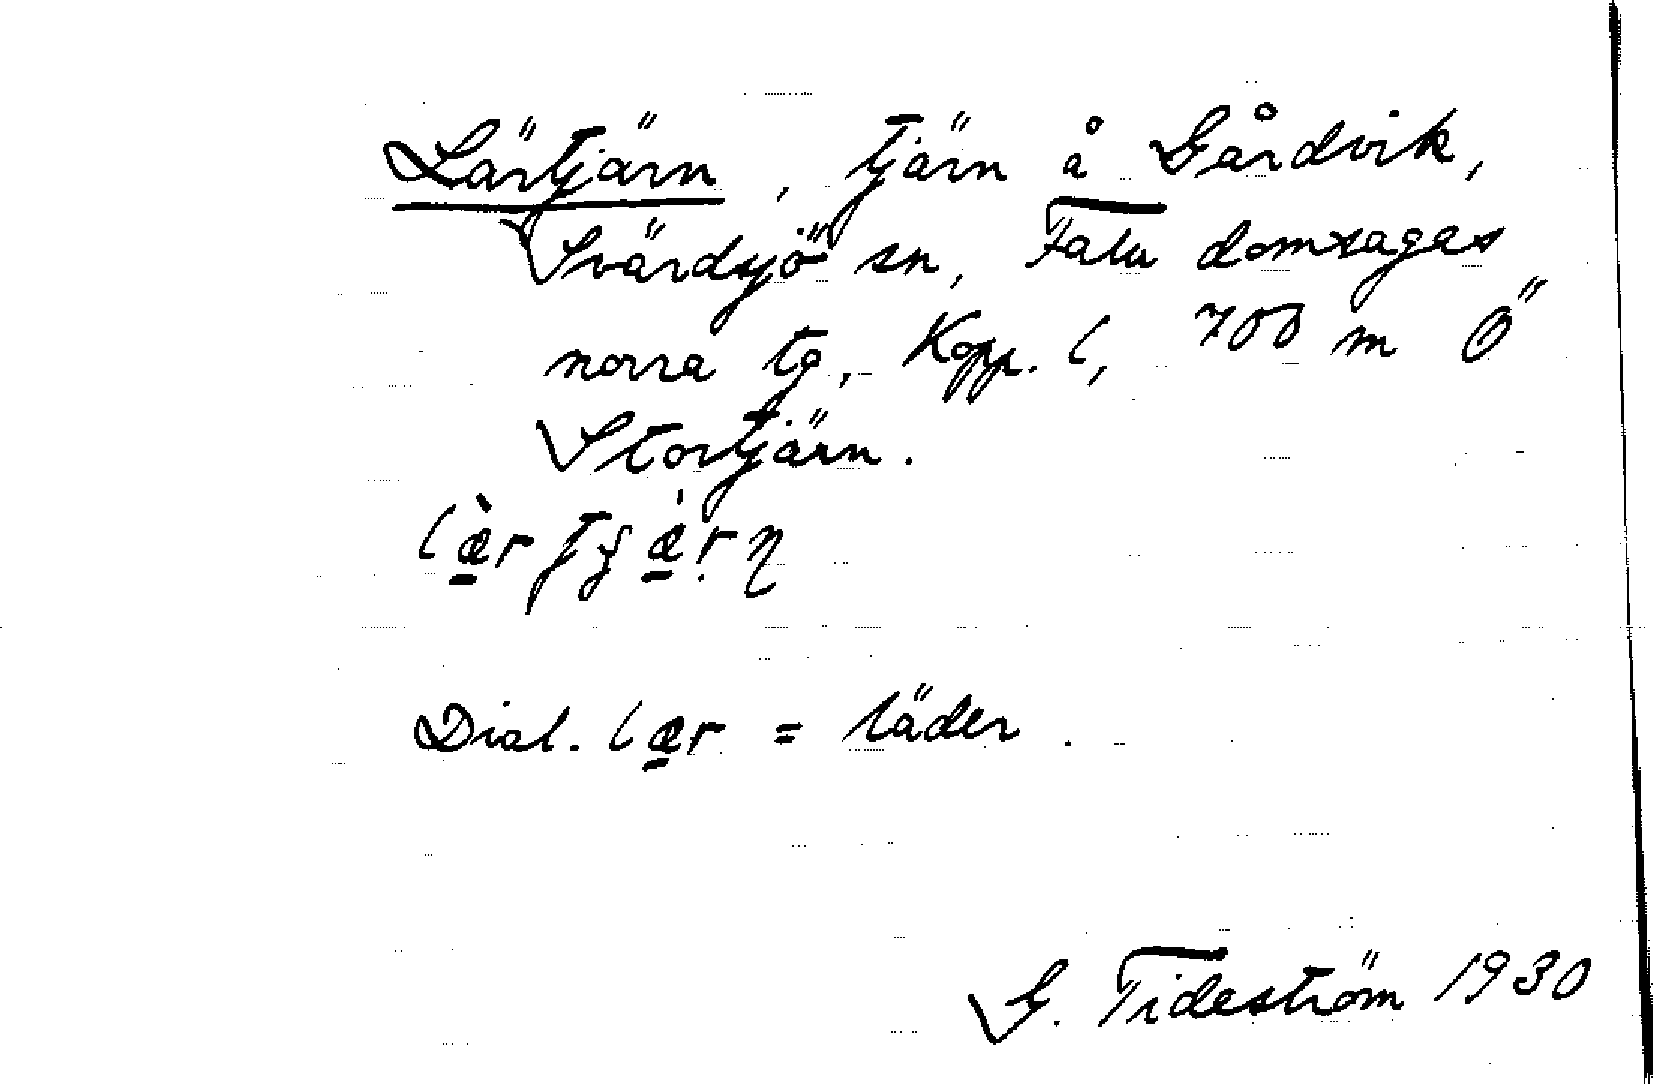 Lärtjärn, tjärn å Gårdvik,
Svärdsjö sn, Falu domsagas
norra tg, Kopp. l, 700 m Ö
Stortjärn.
Dial. lær = läder.
G. Tideström 1930